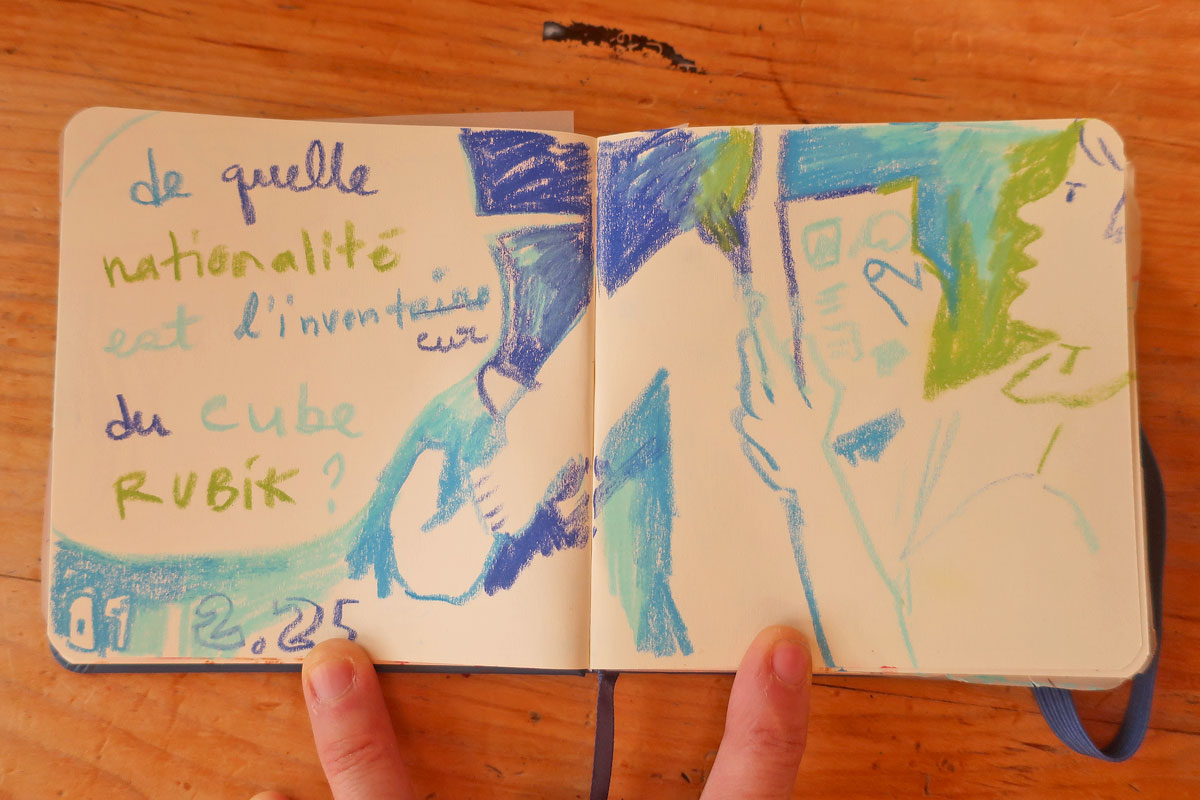 de quelle
nationalité
est l'inventaire
eur
du cube
RUBiK ?
01 2.25